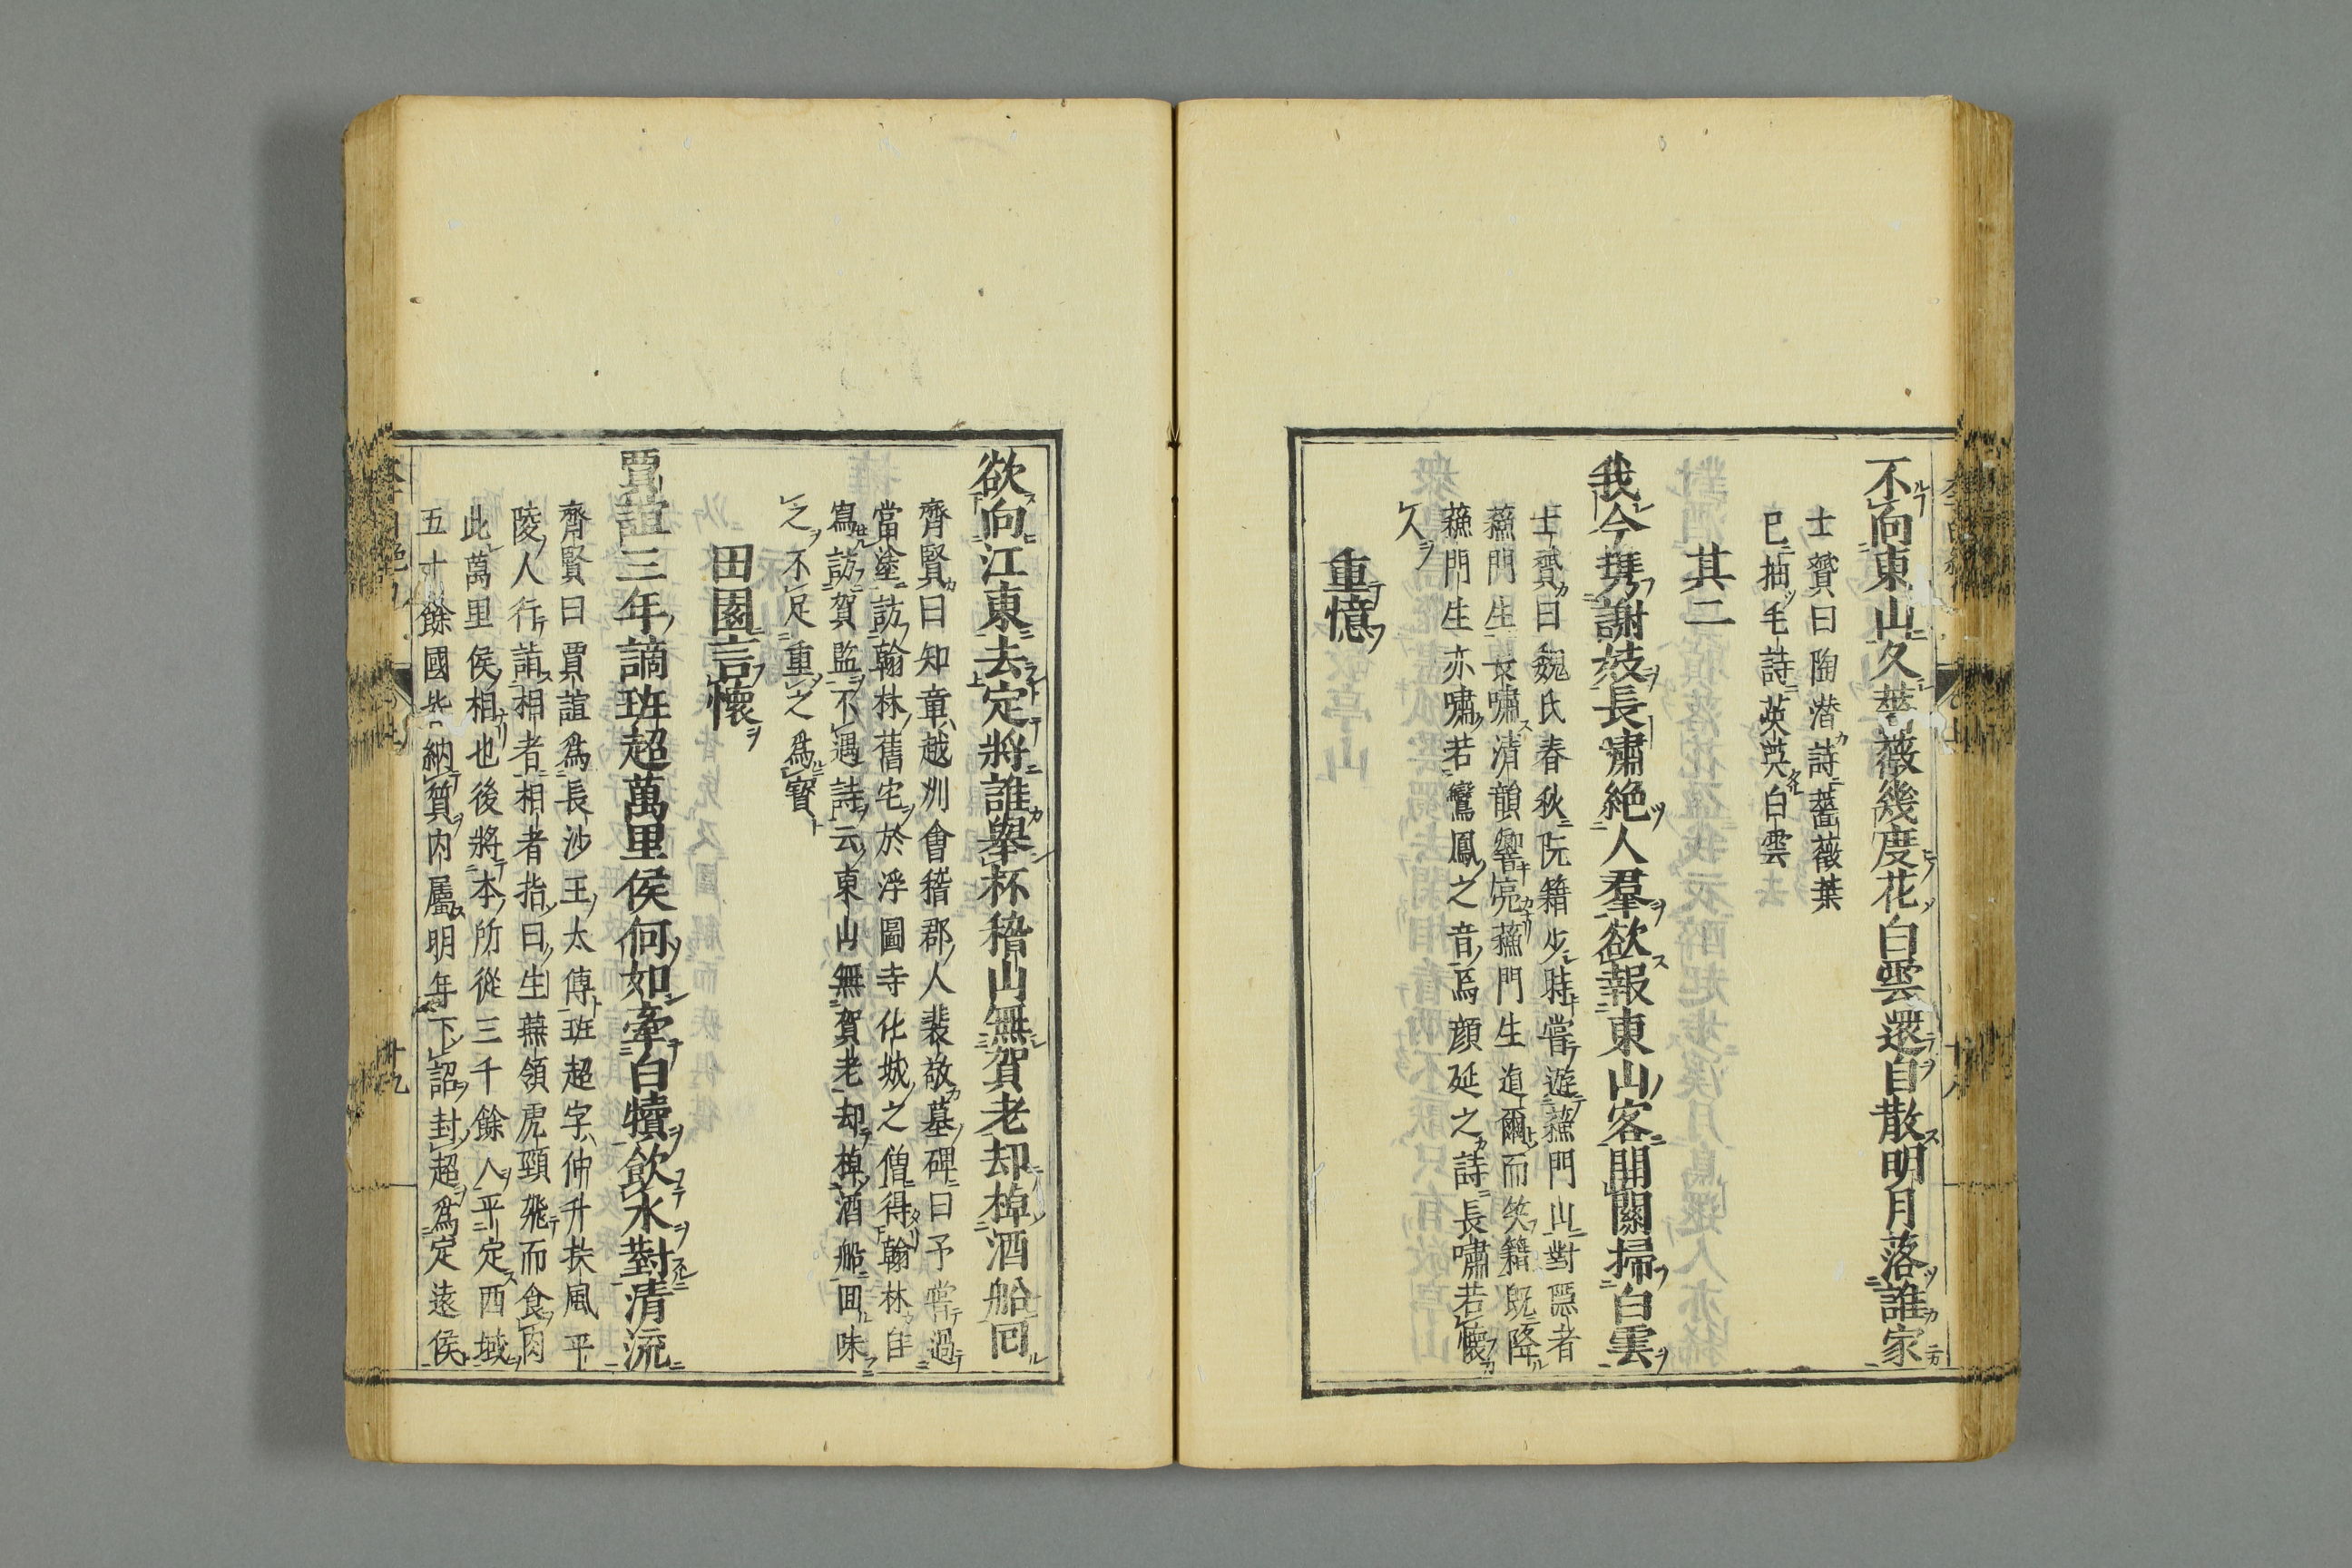 不向東山久薔薇幾度花白雲還自散明月落誰家
士贇曰陶潛詩薔薇葉
已抽毛詩英英白雲
其二
我今携謝妓長嘯絶人羣欲報東山客開關掃白雲
士贇曰魏氏春秋阮籍少時嘗遊蘓門山對隱者
蘓門生長嘯清韻響亮蘓門生逌爾而笑籍既降
蘓門生亦嘯若鸞鳳之音焉顔延之詩長嘯若懷
人
重憶
欲向江東去定將誰舉杯稽山無賀老却棹酒船回
齊賢曰知章越州會稽郡人裴敬墓碑曰予嘗過
當塗訪翰林舊宅於浮圖寺化城之僧得翰林自
寫訪賀監不遇詩云東山無賀老却棹酒船回味
之不足重之爲寳
田園言懷
賈誼三年謫班超萬里侯何如牽白犢飲水對清流
齊賢曰賈誼爲長沙王太傅班超字仲升扶風平
陵人行詣相者相者指曰生燕領虎頸飛而食肉
此萬里侯相也後將本所從三千餘人平定西域
五十餘國皆納質内屬明年下詔封超爲定遠侯
十八
十九